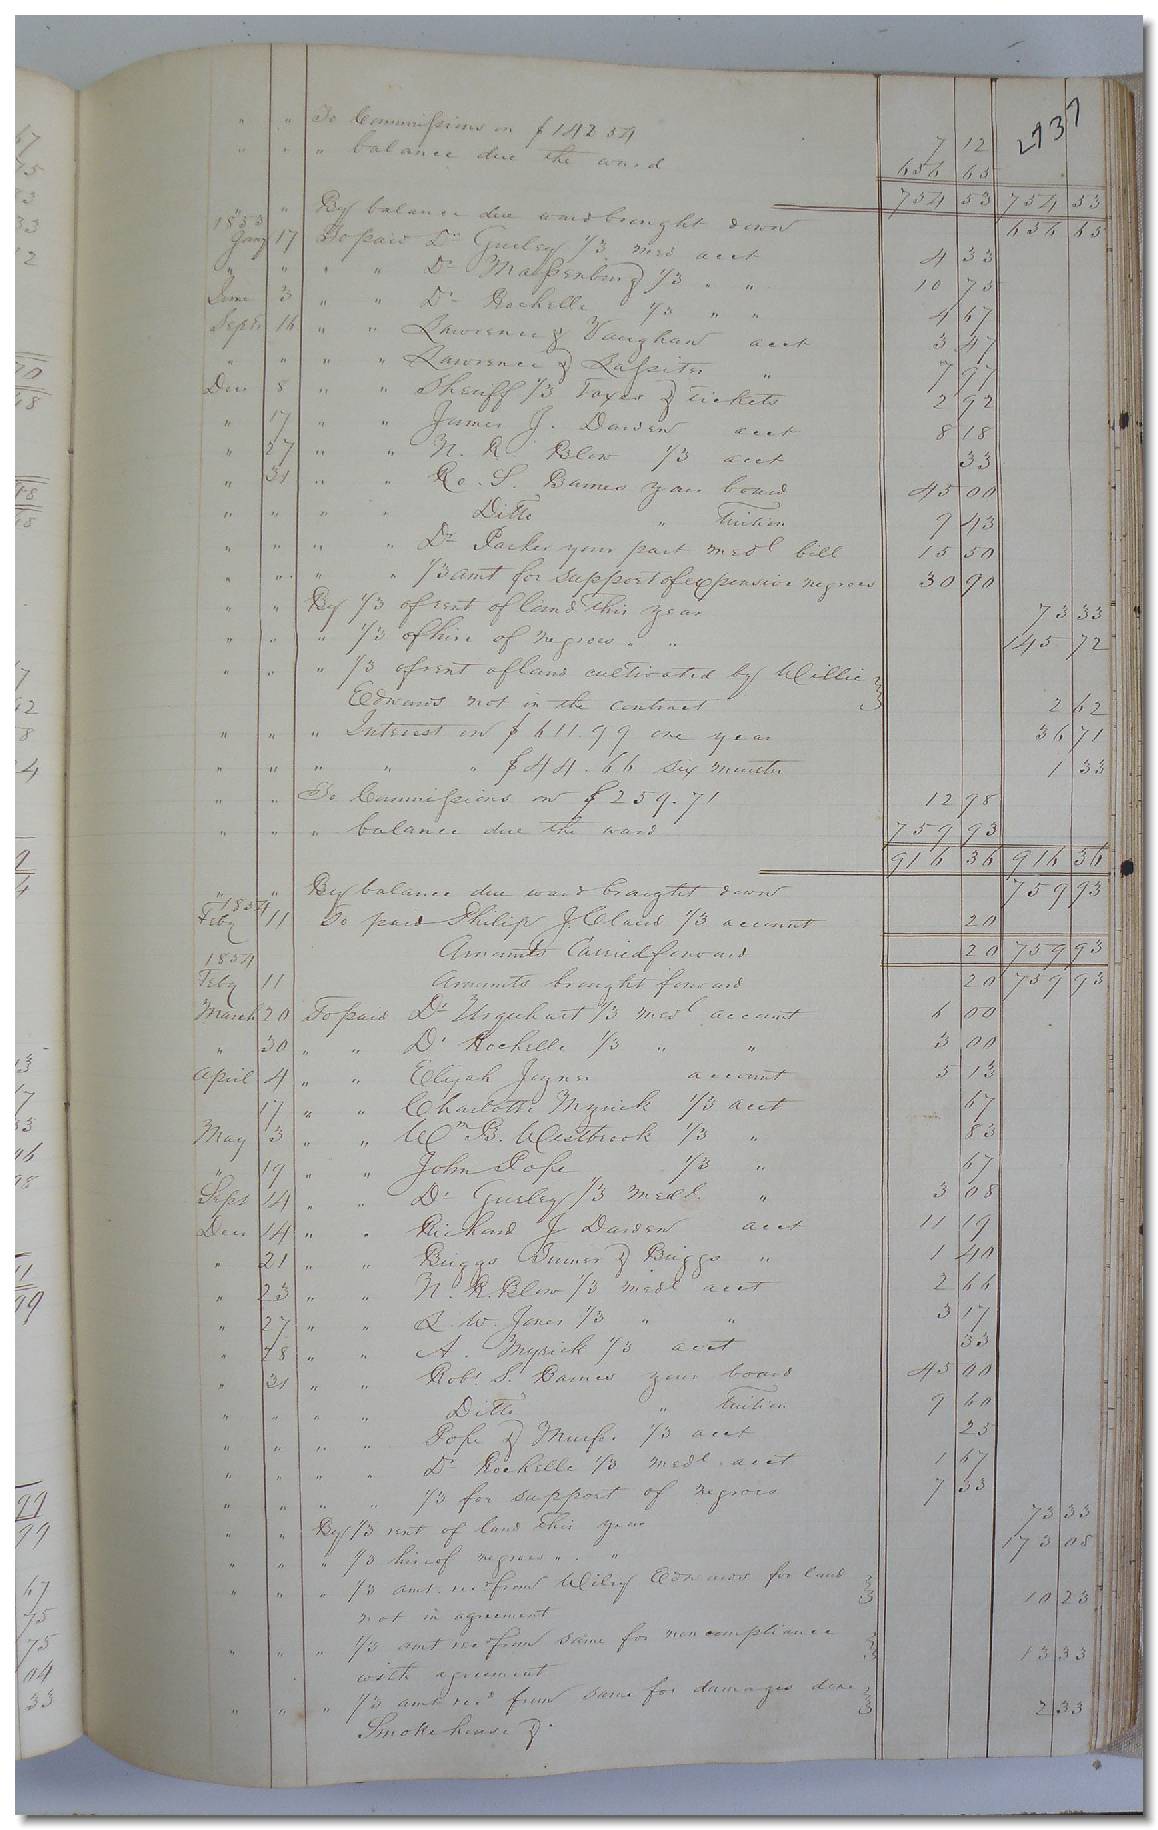 2737
" " To Commissions on $142 54 7 12
" " " balance due the ward 656 65
754 53 754 53
" " By balance due ward brought down 656 65
1853
Jany 17 To paid Dr Gurley 1/3 med acct 4 33
" " " " Dr Massenburg 1/3 " " 10 75
June 3 " " Dr Rochelle 1/3 " " 4 67
Septr 16 " " Lawrence & Vaughan acct 3 47
" " " " Lawrence & Lassiter " 7 97
Dec 8 " " Sheriff 1/3 Taxes & Tickets 2 92
" 17 " " James J. Darden acct 8 18
" 27 " " N. R. Blow 1/3 acct 33
" 31 " " Ro. S. Barnes year board 45 00
" " " " Ditto " Tuition 9 43
" " " " Dr Parker your part medl bill 15 50
" " " " 1/3 amt for support of expensive negroes 30 90
" " By 1/3 of rent of land this year 73 33
" " " 1/3 of hire of negroes " " 145 72
" " " 1/3 of rent of land cultivated by Willie
Edwards not in the contract 2 62
" " " Interest on $611.99 one year 36 71
" " " " " $44.66 six months 1 33
" " To Commissions on $259.71 12 98
" " " balance due the ward 759 93
916 36 916 36
" " By balance due ward brought down 759 93
1854
Feby 11 To paid Philip J. Claud 1/3 account 20
Amounts Carried forward 20 759 93
1854
Feby 11 Amounts brought forward 20 759 93
March 20 To paid Dr Urquhart 1/3 medl account 6 00
" 30 " " Dr Rochelle 1/3 " " 3 00
April 4 " " Elijah Joyner account 5 13
17 " " Charlotte Myrick 1/3 acct 67
May 3 " " Wm B. Westbrook 1/3 " 83
" 19 " " John Pope 1/3 " 67
Sept 14 " " Dr Gurley 1/3 medl. " 3 08
Dec 14 " " Richard J Darden acct 11 19
" 21 " " Briggs & Briggs " 1 40
" 23 " " N. R. Blow 1/3 medl acct 2 66
" 27 " " L. W. Jones 1/3 " " 3 17
" 28 " " A. Myrick 1/3 acct 33
" 31 " " Robt S. Barnes year board 45 00
" " " " Ditto " Tuition 9 60
" " " " Pope & 1/3 acct 25
" " " " Dr Rochelle 1/3 medl. acct 1 67
" " " " 1/3 for support of negroes 7 33
" " By 1/3 rent of land this year 73 33
" " " 1/3 hire of negroes " " 173 08
" " " 1/3 amt. recd from Wiley Edwards for land
not in agreement 10 23
" " " 1/3 amt recd from same for non compliance
with agreement 13 33
" " " 1/3 amt recd from same for damages done
Smoke house &. 2 33